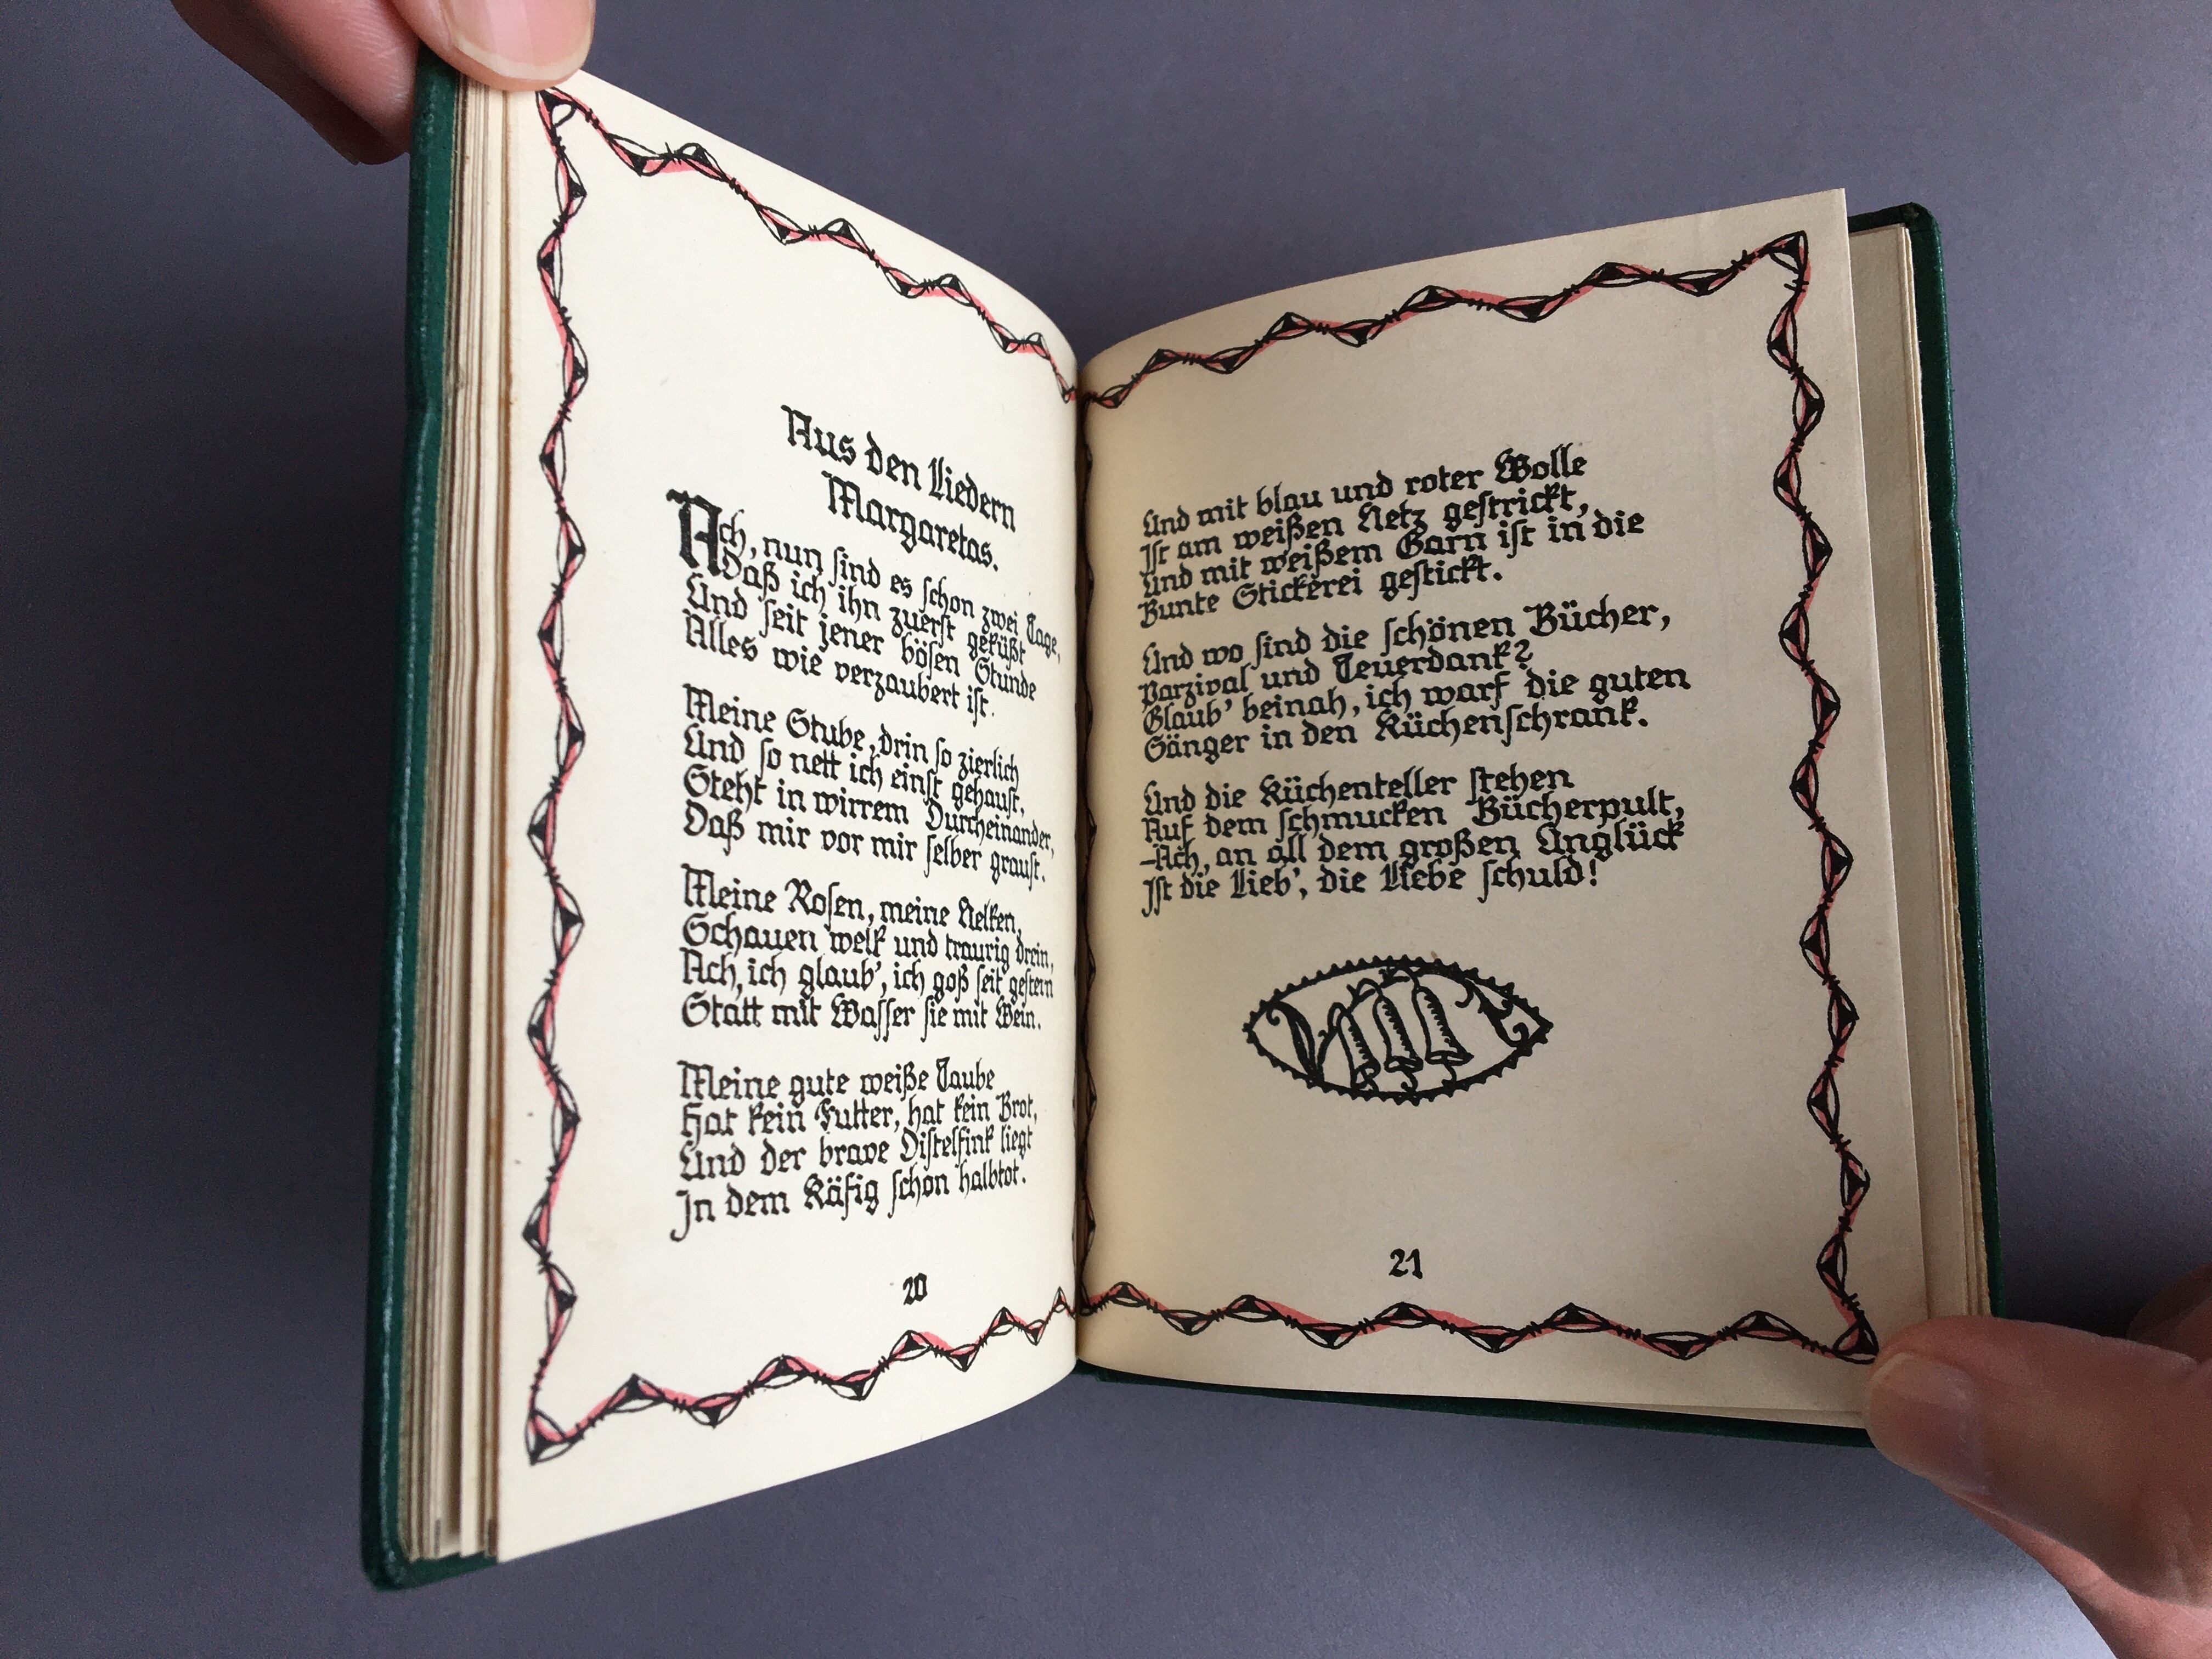 Aus den Liedern
Margaretas.
Ach, nun sind es schon zwei Tage,
Daß ich ihn zuerst geküßt
Und seit jener bösen Stunde
Alles wie verzaubert ist.
Meine Stube, drin so zierlich
Und so nett ich einst gehaust,
Steht in wirrem Durcheinander,
Daß mir vor mir selber graust.
Meine Rosen, meine Nelken,
Schauen welk und traurig drein,
Ach, ich glaub', ich goß seit gestern
Statt mit Wasser sie mit Wein.
Meine gute weiße Taube
Hat kein Futter, hat kein Brot,
Und der brave Distelfink liegt
In dem Käfig schon halbtot.
20
Und mit blau und roter Wolle
Ist am weißen Netz gestrickt,
Und mit weißem Garn ist in die
Bunte Stickerei gestickt.
Und wo sind die schönen Bücher,
Parzival und Teuerdank?
Glaub' beinah, ich warf die guten
Sänger in den Küchenschrank.
Und die Küchenteller stehen
Auf dem schmucken Bücherpult,
–Ach, an all dem großen Unglück
Ist die Lieb', die Liebe schuld!
21